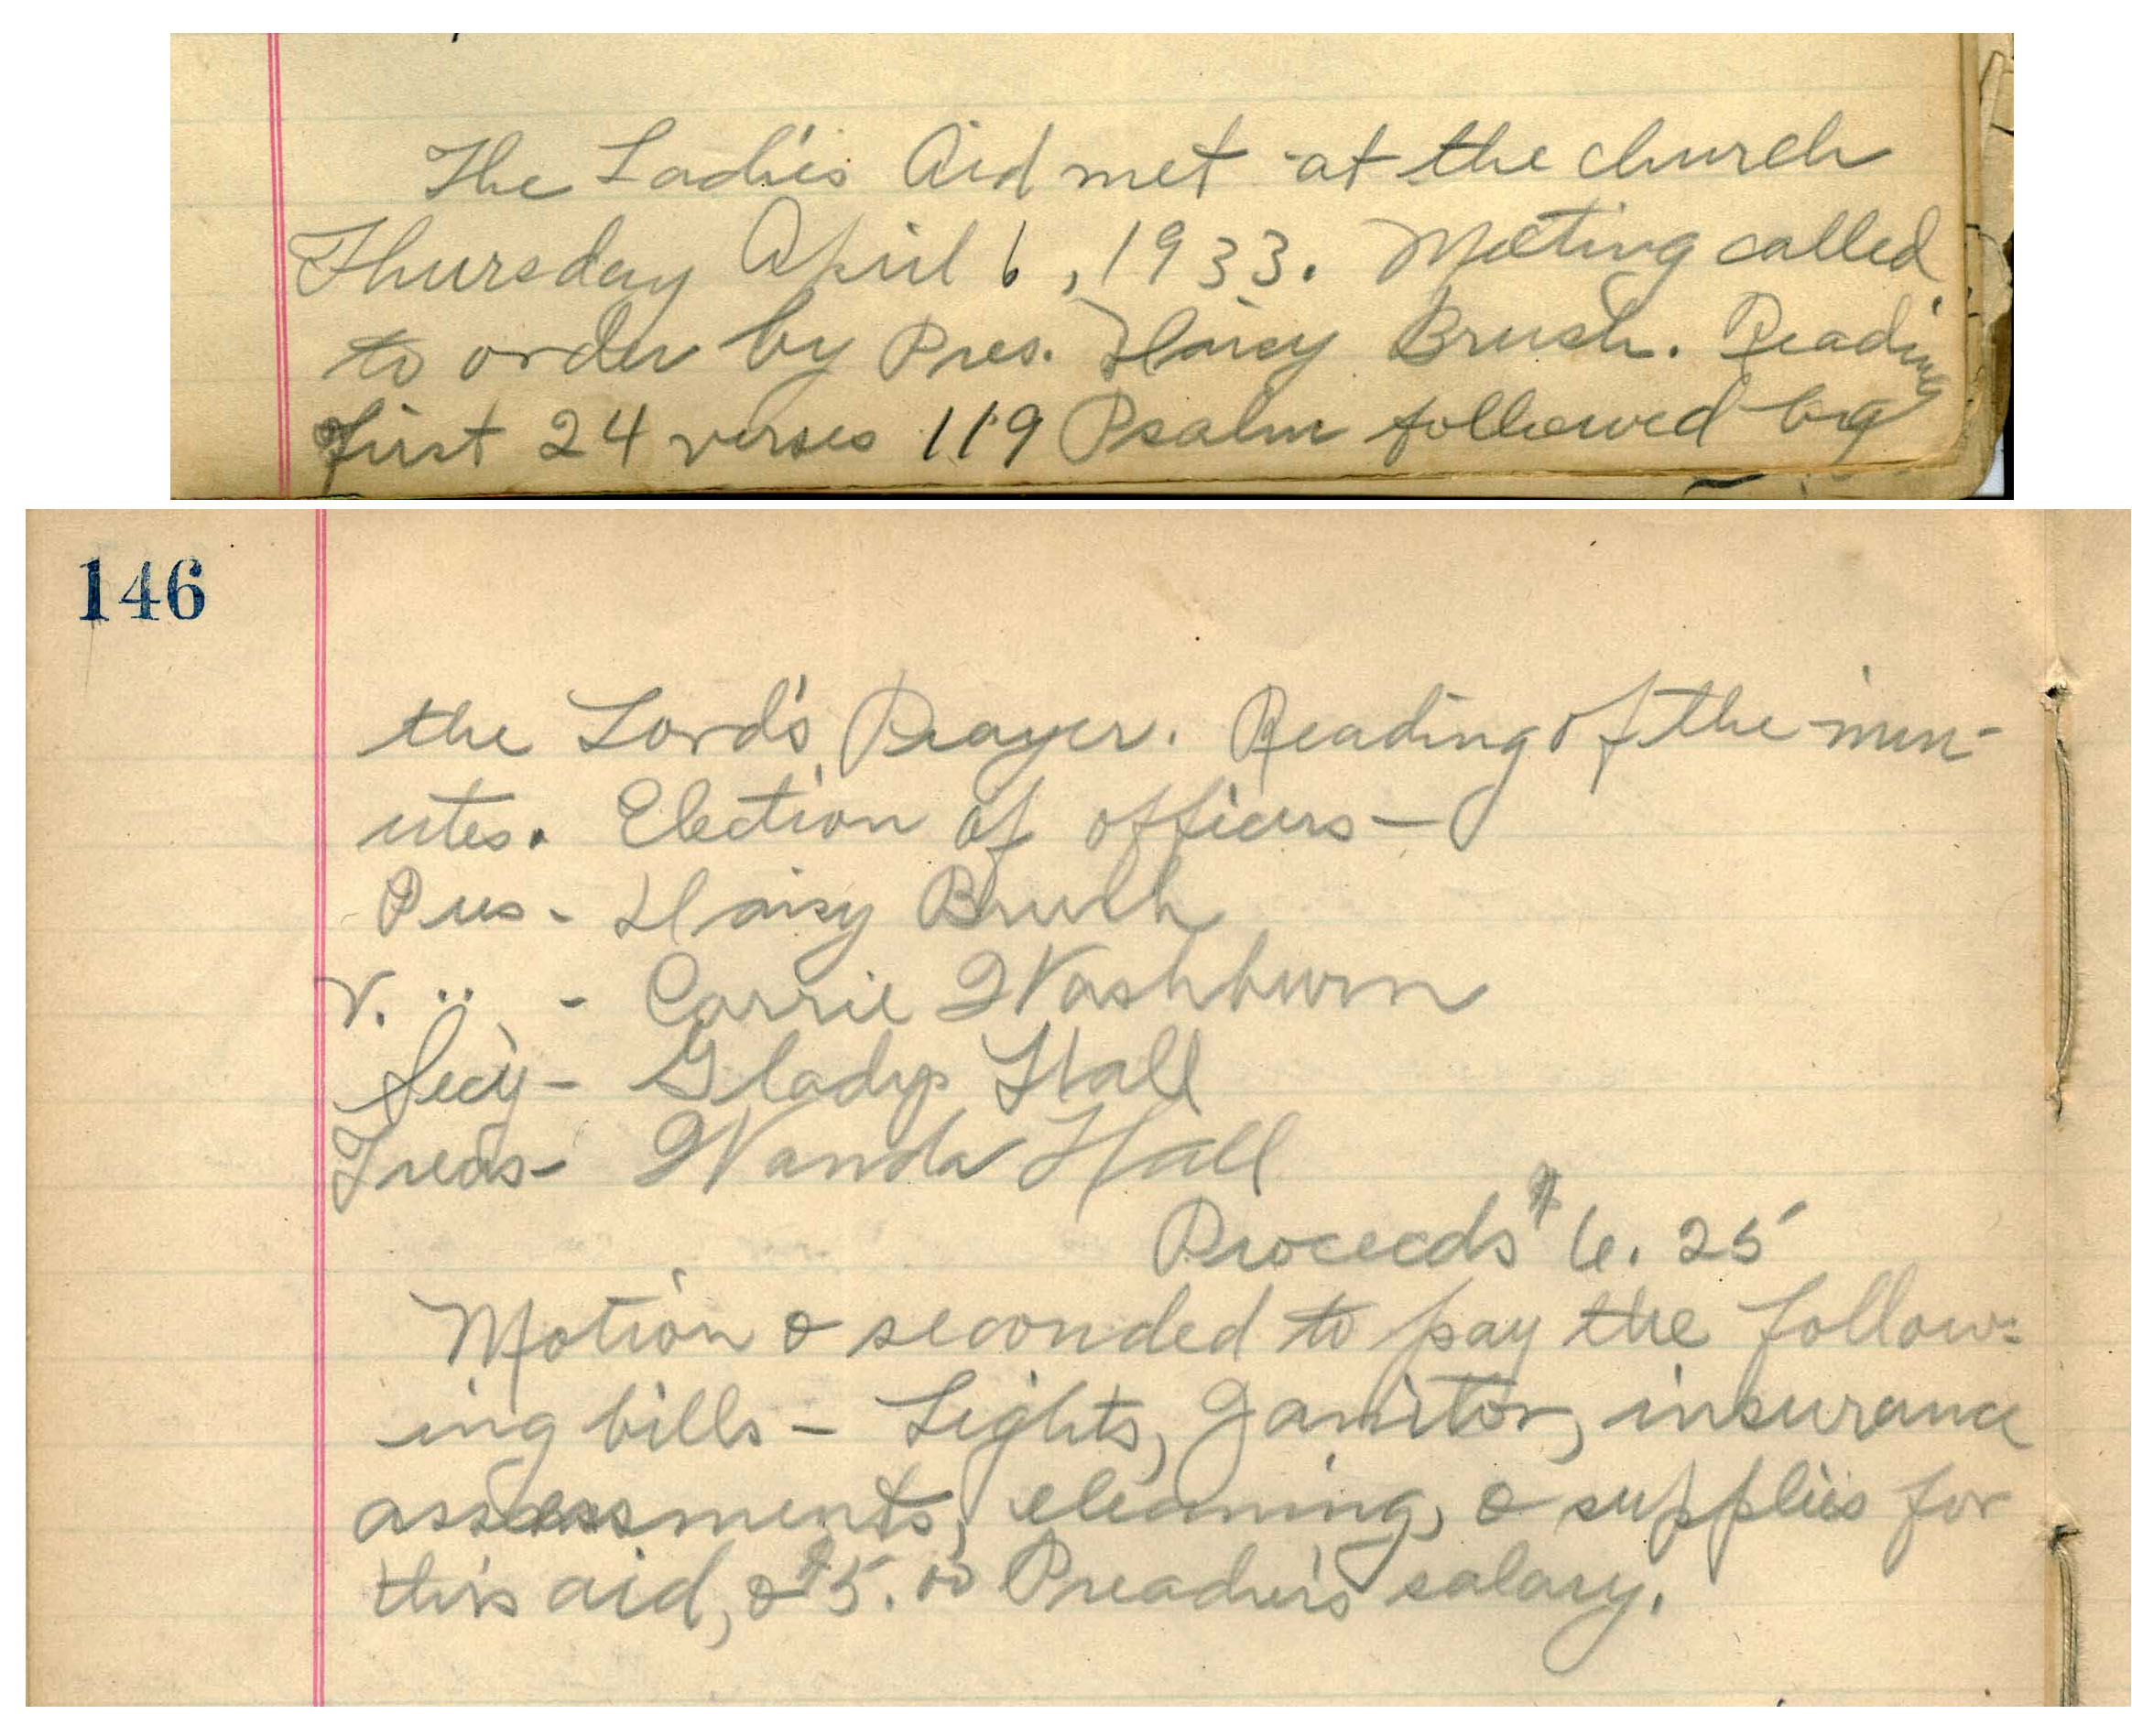 The Ladies Aid met at the church
Thursday April 6, 1933. Meeting called
to order by Pres. Daisy Brush. Reading
first 24 verses 119 Psalm followed by
146
the Lord's Prayer. Reading of the min-
utes. Election of officers—
Pres - Daisy Brush
V. " - Carrie Washburn
Sec'y - Gladys Hall
Treas - Wanda Hall
Proceeds $6.25
Motion & seconded to pay the follow-
ing bills - Lights, Janitor, insurance
assessments, cleaning, & supplies for
this aid, & $5.00 Preacher's salary.